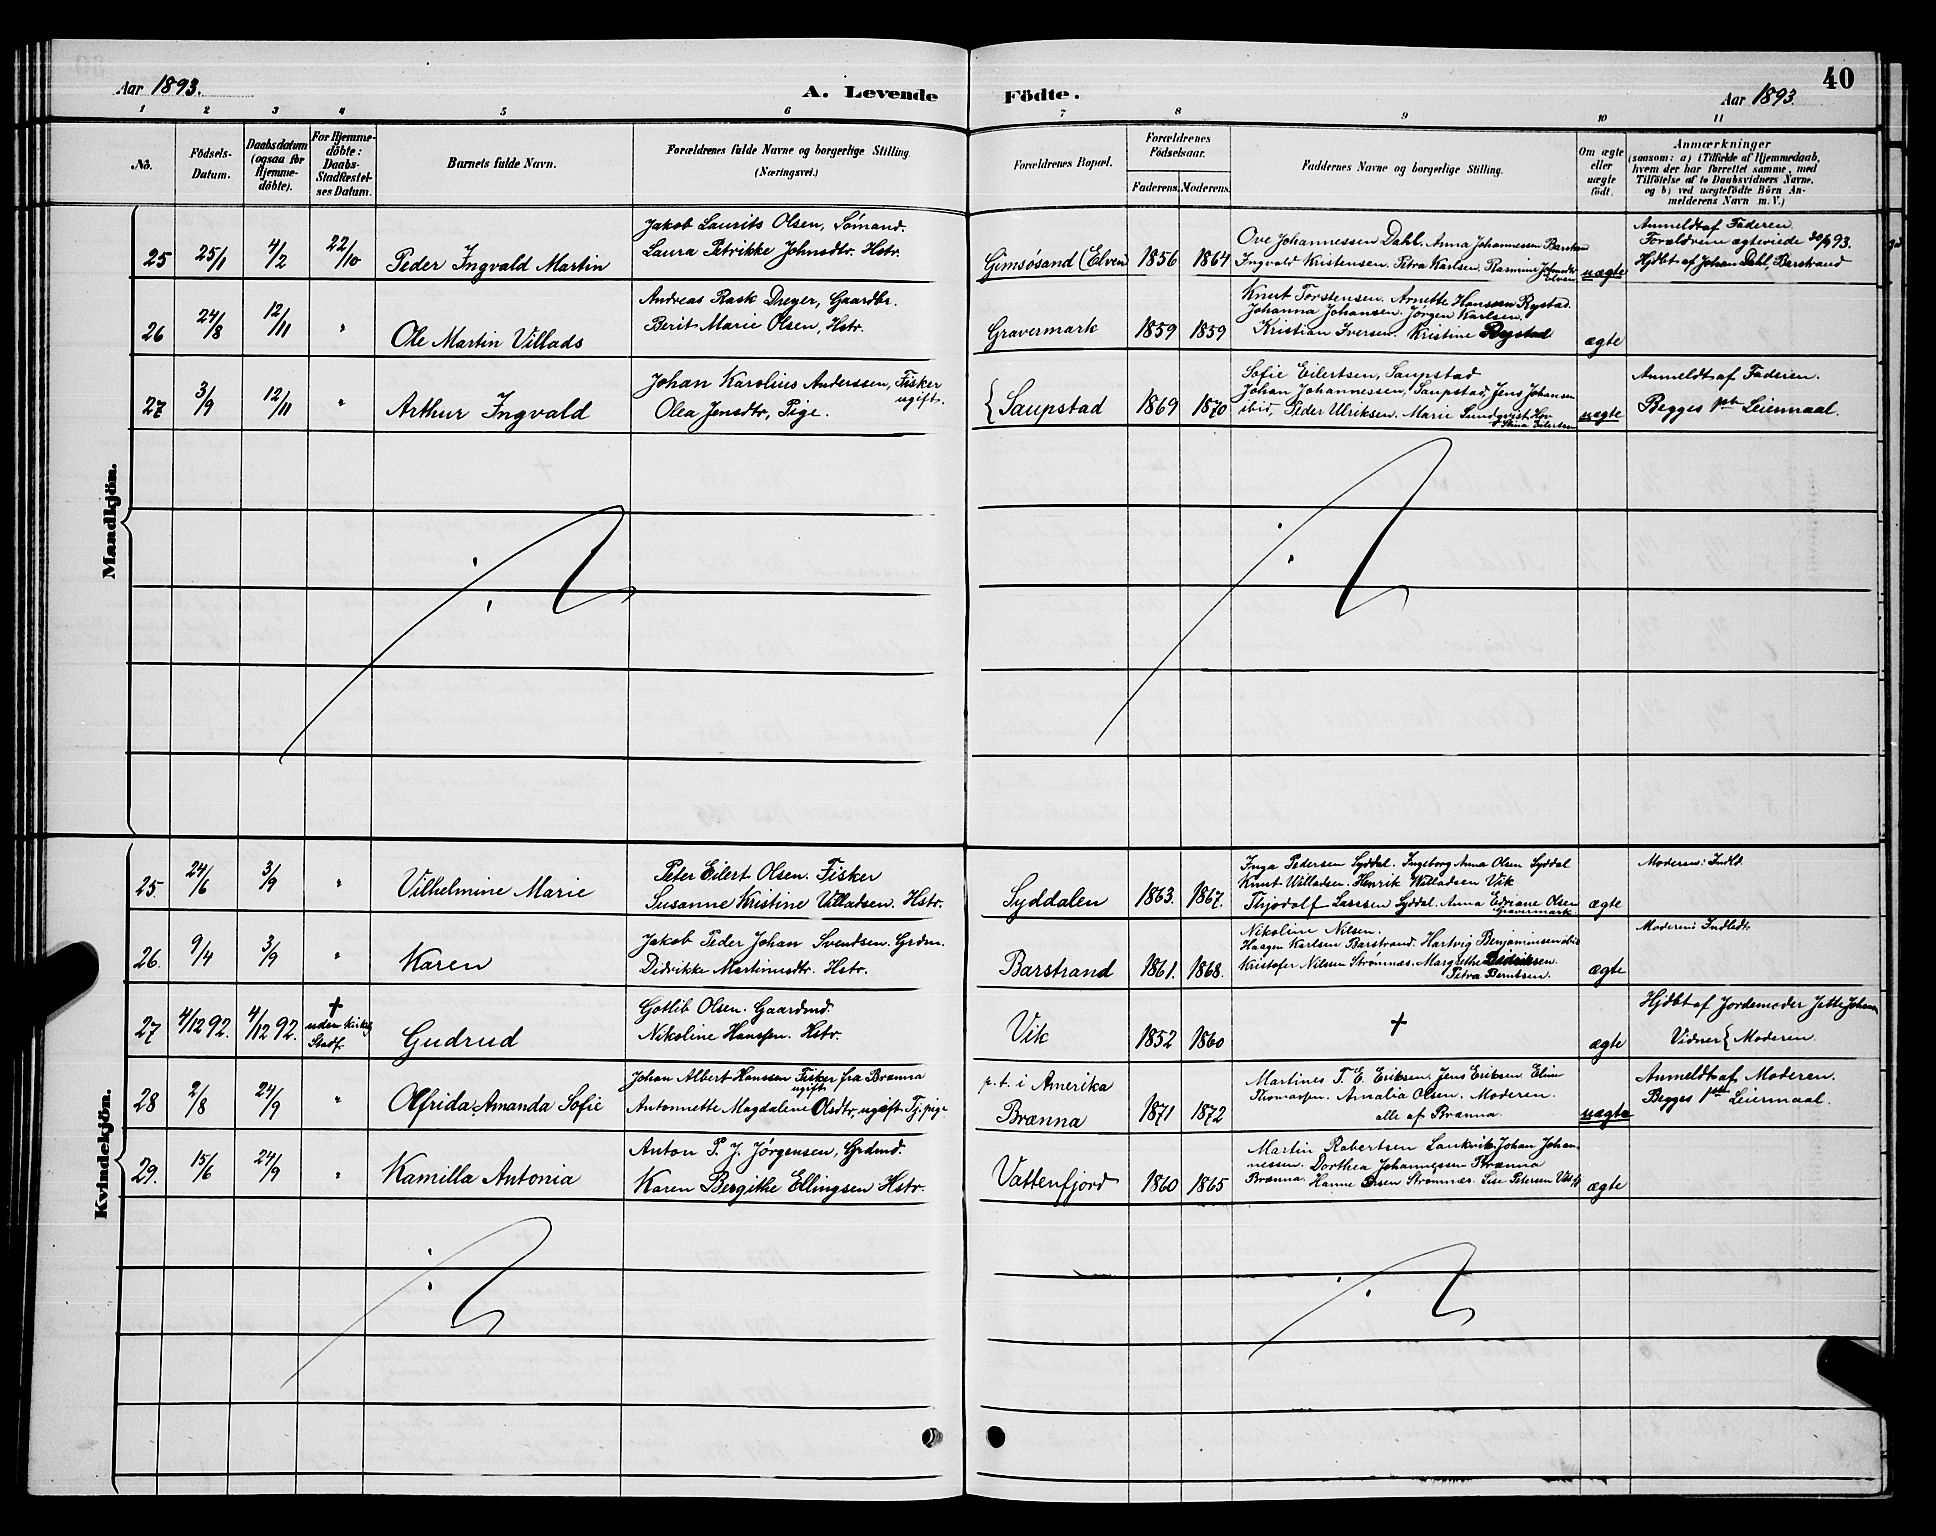 Aar 1893. A. Levende Födte. Aar 1893. 40
1 2 3 4 5 6 7 8 9 10 11
No. Födsels-Datum. Daabsdatum (ogsaa for Hjemme-döbte). For Hjemme-döbte: Daabs-Stadfæstel-ses Datum. Barnets fulde Navn. Forældrenes fulde Navne og borgerlige Stilling (Næringsvei.) Forældrenes Bopæl. Forældrenes Födselsaar. Faderens. Moderens. Faddernes Navne og borgerlige Stilling. Om ægte eller uægte födt. Anmærkninger
(saasom: a) i Tilfælde af Hjemmedaab,
hvem der har forrettet samme, med
Tilföielse af to Daabsvidners Navne,
og b) ved uægtefödte Börn An-
melderens Navn m. V.)
Mandkjön.
25 25/1 4/2 22/10 Peder Ingvald Martin
Jakob Laurits Olsen, Sømand.
Laura Petrikke Johnsdtr. Hstr.
Gimsøsand (Elven 1856 1864
Ove Johannessen Dahl. Anna Johannessen
Ingvald Kristensen. Petra Karlsen. Rasmine
uægte
Anmeldt af Faderen
Forældrene ægteviede 93.
Hjdbt af Johan Dahl, Barstrand
26 24/8 12/11 " Ole Martin Villads
Andreas Rask Dreyer, Gaardbr.
Berit Marie Olsen, Hstr.
Gravermark 1859 1859
Knut Torstensen. Arnette Hanssen Rystad.
Johanna Johansen. Jørgen Karlsen.
Kristian Iversen. Kristine Rystad
ægte
27 3/9 12/11 " Arthur Ingvald
Johan Karolius Anderssen, Fisker
ugift.
Olea Jensdtr, Pige.
{ Saupstad 1869 1870
Sofie Eilertsen, Saupstad
Johan Johannessen, Saupstad, Jens Johansen
ibid, Peder Ulriksen. Marie Sundqvist, Hov
Stina Eilertsen
uægte
Anmeldt af Faderen.
Begges 1ste Leiermaal.
Kvindekjön.
25. 24/6 3/9 " Vilhelmine Marie
Peter Eilert Olsen. Fisker
Susanne Kristine Villadsen. Hstr.
Syddalen 1863. 1867.
Inga Pedersen Syddal. Ingeborg Anna Olsen Syddal
Knut Willadsen. Henrik Willadsen Vik
Thjodolf Larssen Syddal. Anna Edriane Olsen
Gravermark
ægte
Moderens Indld.
26. 9/4 3/9 " Karen
Jakob Peder Johan Svendsen. Grdm.
Didrikke Martinusdtr. Hstr.
Barstrand 1861. 1868.
Nikoline Nilsen.
Haagen Karlsen Barstrand. Hartvig Benjaminsen ibid
Kristofer Nilsen Strømnæs. Margrethe Didriksen.
Petra Berntsen.
ægte
Moderens Indledt.
27 4/12 92. 4/12 92. †
uden Kirkelg
Stadf. Gudrud
Gotlib Olsen. Gaardmd.
Nikoline Hanssen. Hstr.
Vik 1852 1860 † ægte
Hjdbt af Jordemoder Jette Johan
Vidner { Moderen.
28 2/8 24/9 " Olfrida Amanda Sofie
Johan Albert Hanssen Fisker fra Brænna
ugift
Antonnette Magdalene Olsdtr, ugift Tj.pige
p. t. i Amerika
Brænna 1871 1872
Martines T. E. Eriksen. Jens Eriksen. Elin
Thomassen. Amalia Olsen. Moderen.
alle af Brænna.
uægte
Anmeldt af Moderen.
Begges 1ste Leiermaal.
29. 15/6 24/9 " Kamilla Antonia
Anton P. J. Jørgensen, Grdmd.
Karen Bergithe Ellingsen Hstr.
Vattenfjord 1860 1865
Martin Robertsen Laukvik, Johan Johan-
nessen. Dorthea Johannessen Brænna
Brænna. Hanne Olsen Strømnæs. Lise Petersen
ægte